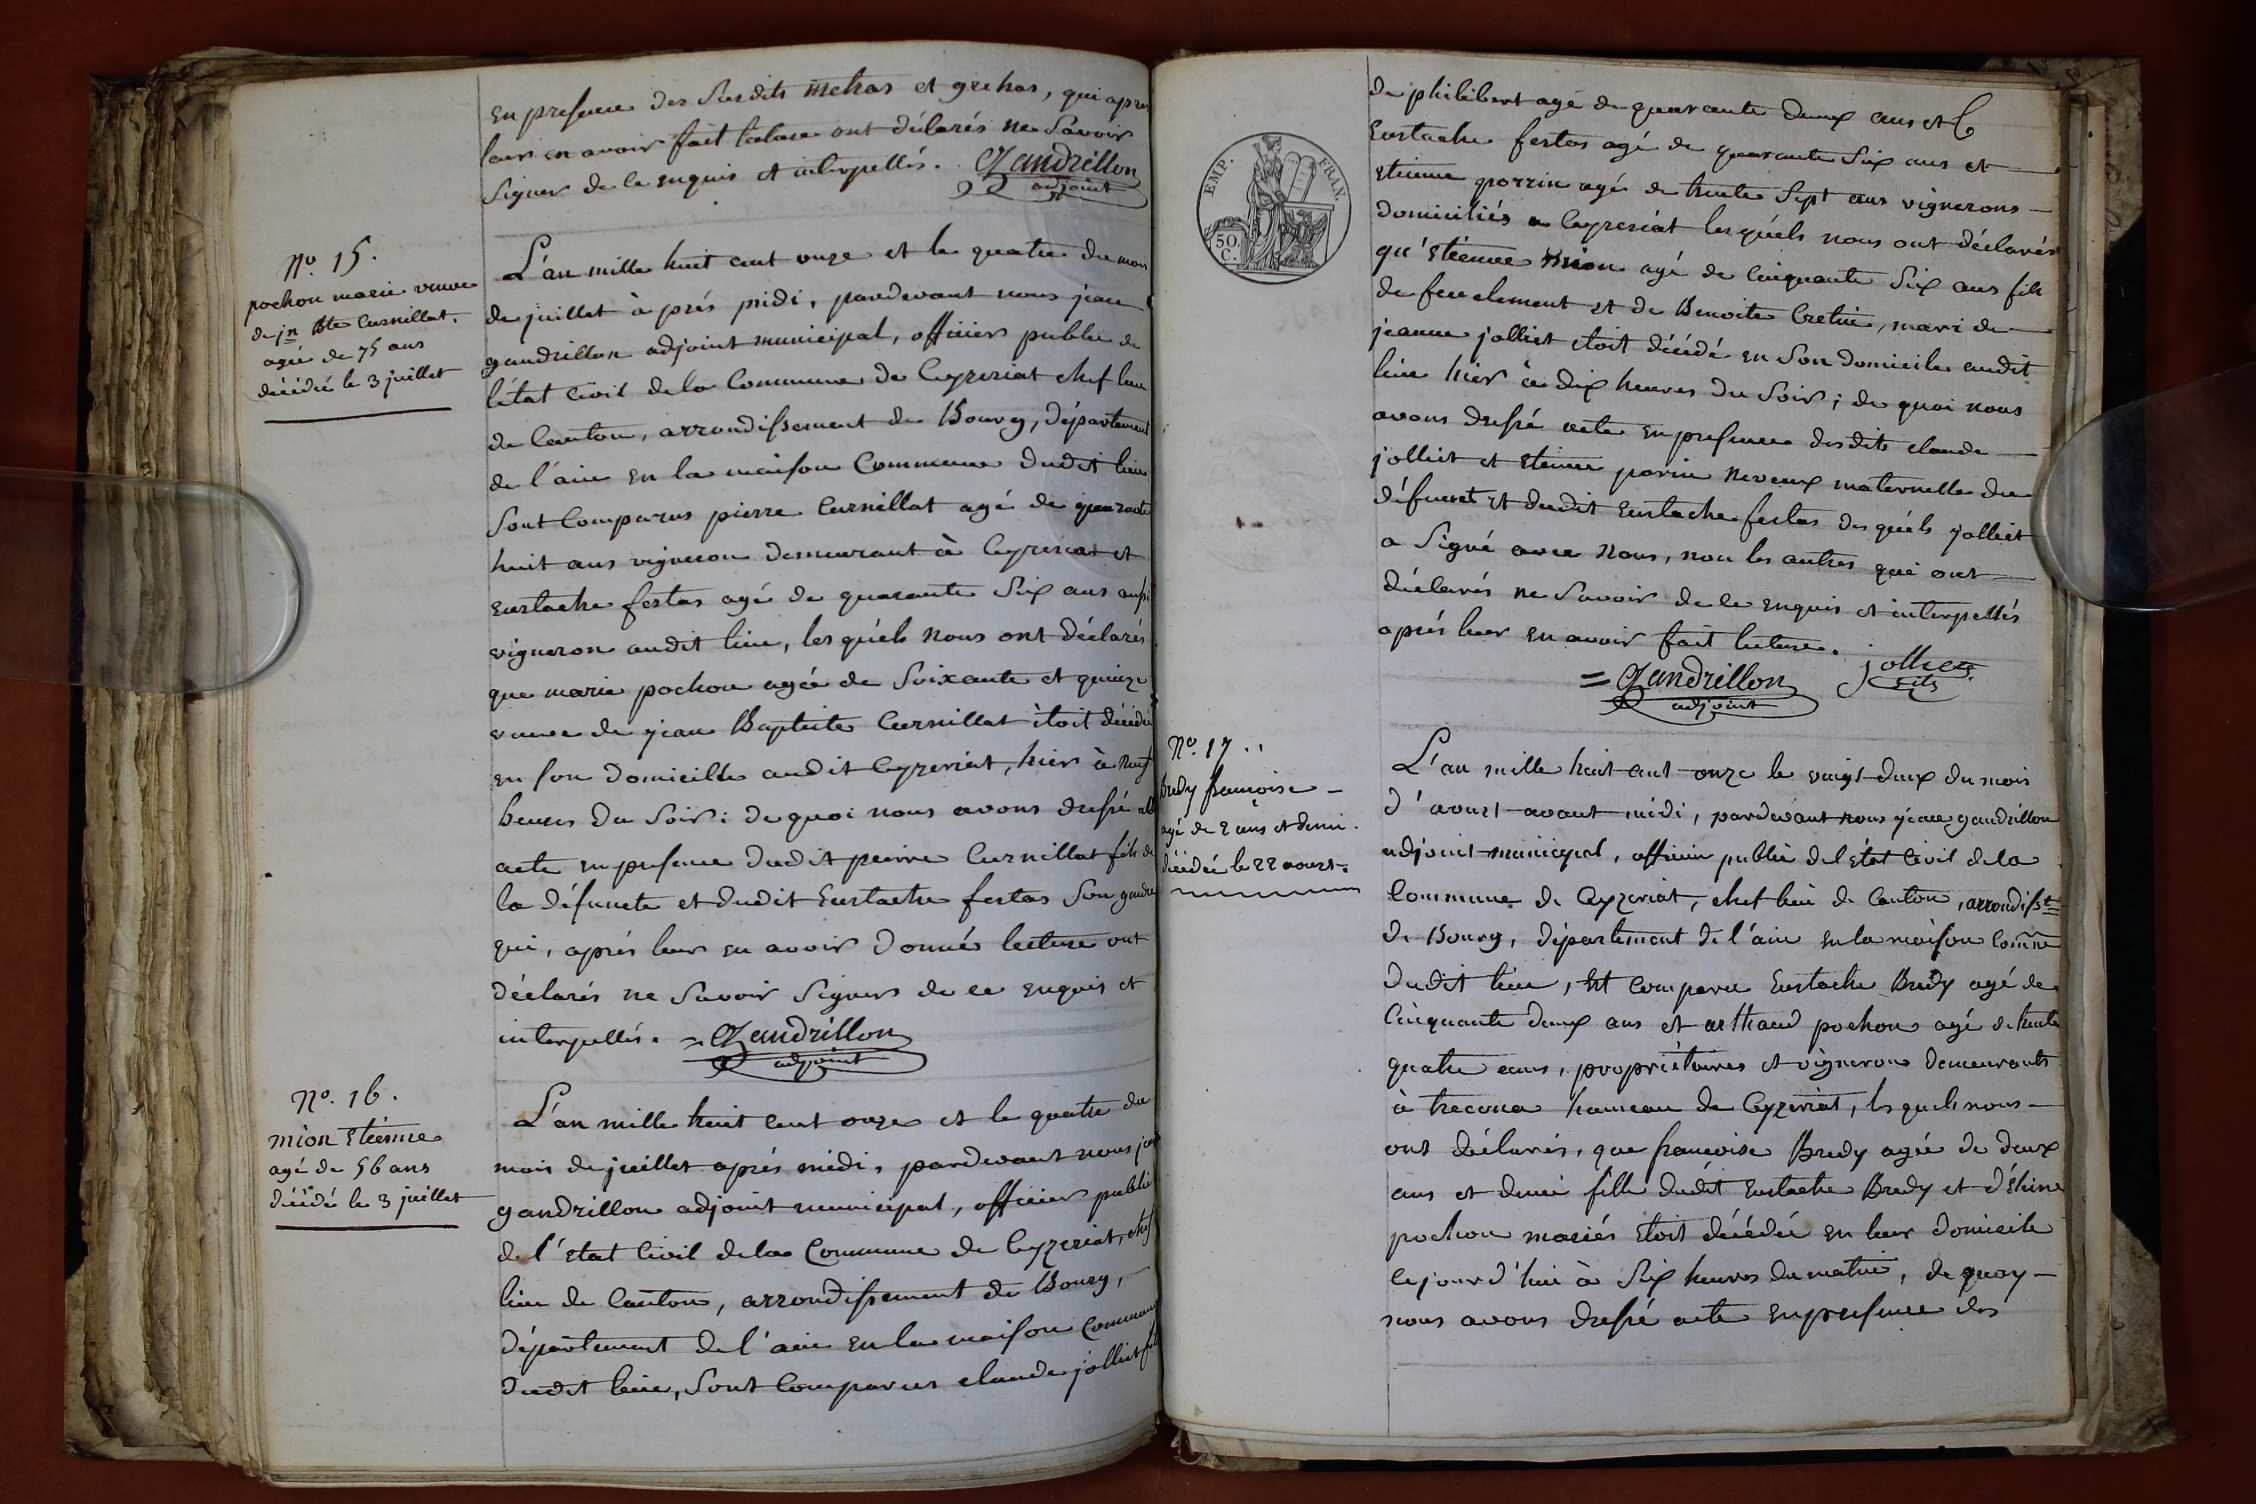 en presence des susdits mehas et grehas, qui après
leur en avoir fait lecture ont déclarés ne savoir
signer de ce enquis et interpellés. Gandrillon
adjoint
Nº. 15.
pochon marie veuve
de jn Bte Curnillat.
agée de 75 ans
décédée le 3 juillet
L'an mille huit cent onze et le quatre du mois
de juillet à prés midi, pardevant nous jean
gandrillon adjoint municipal, officier public de
l'état Civil de la Commune de Ceyzeriat chef lieu
de Canton, arrondissement de Bourg, département
de l'ain en la maison Commune dudit lieu
sont Comparus pierre Curnillat agé de quarante
huit ans vigneron demeurant à Ceyzeriat et
Eustache festas agé de quarante six ans aussi
vigneron audit lieu, les quéls nous ont déclarés
que marie pochon agée de soixante et quinze
veuve de jean Baptiste Curnillat étoit décédée
en son domicille audit Ceyzeriat, hier à neuf
heures du soir: de quoi nous avons dressé
acte en presence dudit pierre Curnillat fils de
la défuncte et dudit Eustache festas son gendre
qui, aprés leur en avoir donné lecture ont
déclarés ne savoir signer de ce enquis et
interpellés. = Gandrillon
adjoint
Nº. 16.
mion Etienne
agé de 56 ans
décédé le 3 juillet
L'an mille huit cent onze et le quatre du
mois de juillet aprés midi, pardevant nous jean
gandrillon adjoint municipal, officier public
de l'Etat Civil de la Commune de Ceyzeriat, chef
lieu de Canton, arrondissement de Bourg,
département de l'ain en la maison Commune
dudit lieu, sont Comparus claude jolliet fils
EMP. FRAN.
50.
C.
de philibert agé de quarante deux ans et
Eustache festas agé de quarante six ans et
etienne porrin agé de trente sept ans vignerons
domiciliés a Ceyzeriat les quéls nous ont déclarés
qu'Etienne mion agé de cinquante six ans fils
de feu clement et de Benoite Cretin, mari de
jeanne jolliet étoit décédé en son domicile audit
lieu hier à dix heures du soir; de quoi nous
avons dressé acte en presence desdits claude
jolliet et etienne porrin neveux maternelle du
défunct et dudit Eustache festas des quéls jolliet
a signé avec nous, non les autres qui ont
déclarés ne savoir de ce enquis et interpellés
aprés leur en avoir fait lecture.
= Gandrillon jolliet
adjoint fils
Nº. 17.
Bredy françoise
agé de 2 ans et demi.
décédée le 22 aoust.
L'an mille huit cent onze le vingt deux du mois
d'aoust avant midi, pardevant nous jean gandrillon
adjoint municipal, officier public de l'état Civil de la
Commune de Ceyzeriat, chef lieu de Canton, arrondisst
de Bourg, département de l'ain en la maison Comne
dudit lieu, est comparu Eustache Bredy agé de
Cinquante deux ans et arthaud pochon agé de trente
quatre ans, propriétaires et vignerons demeurants
à trecona hameau de Ceyzeriat, les quels nous
ont déclarés, que françoise Bredy agée de deux
ans et demi fille dudit Eustache Bredy et d'
pochon mariés étoit décédée en leur domicile
ce jour d'hui à six heures du matin, de quoy
nous avons dressé acte en presence des